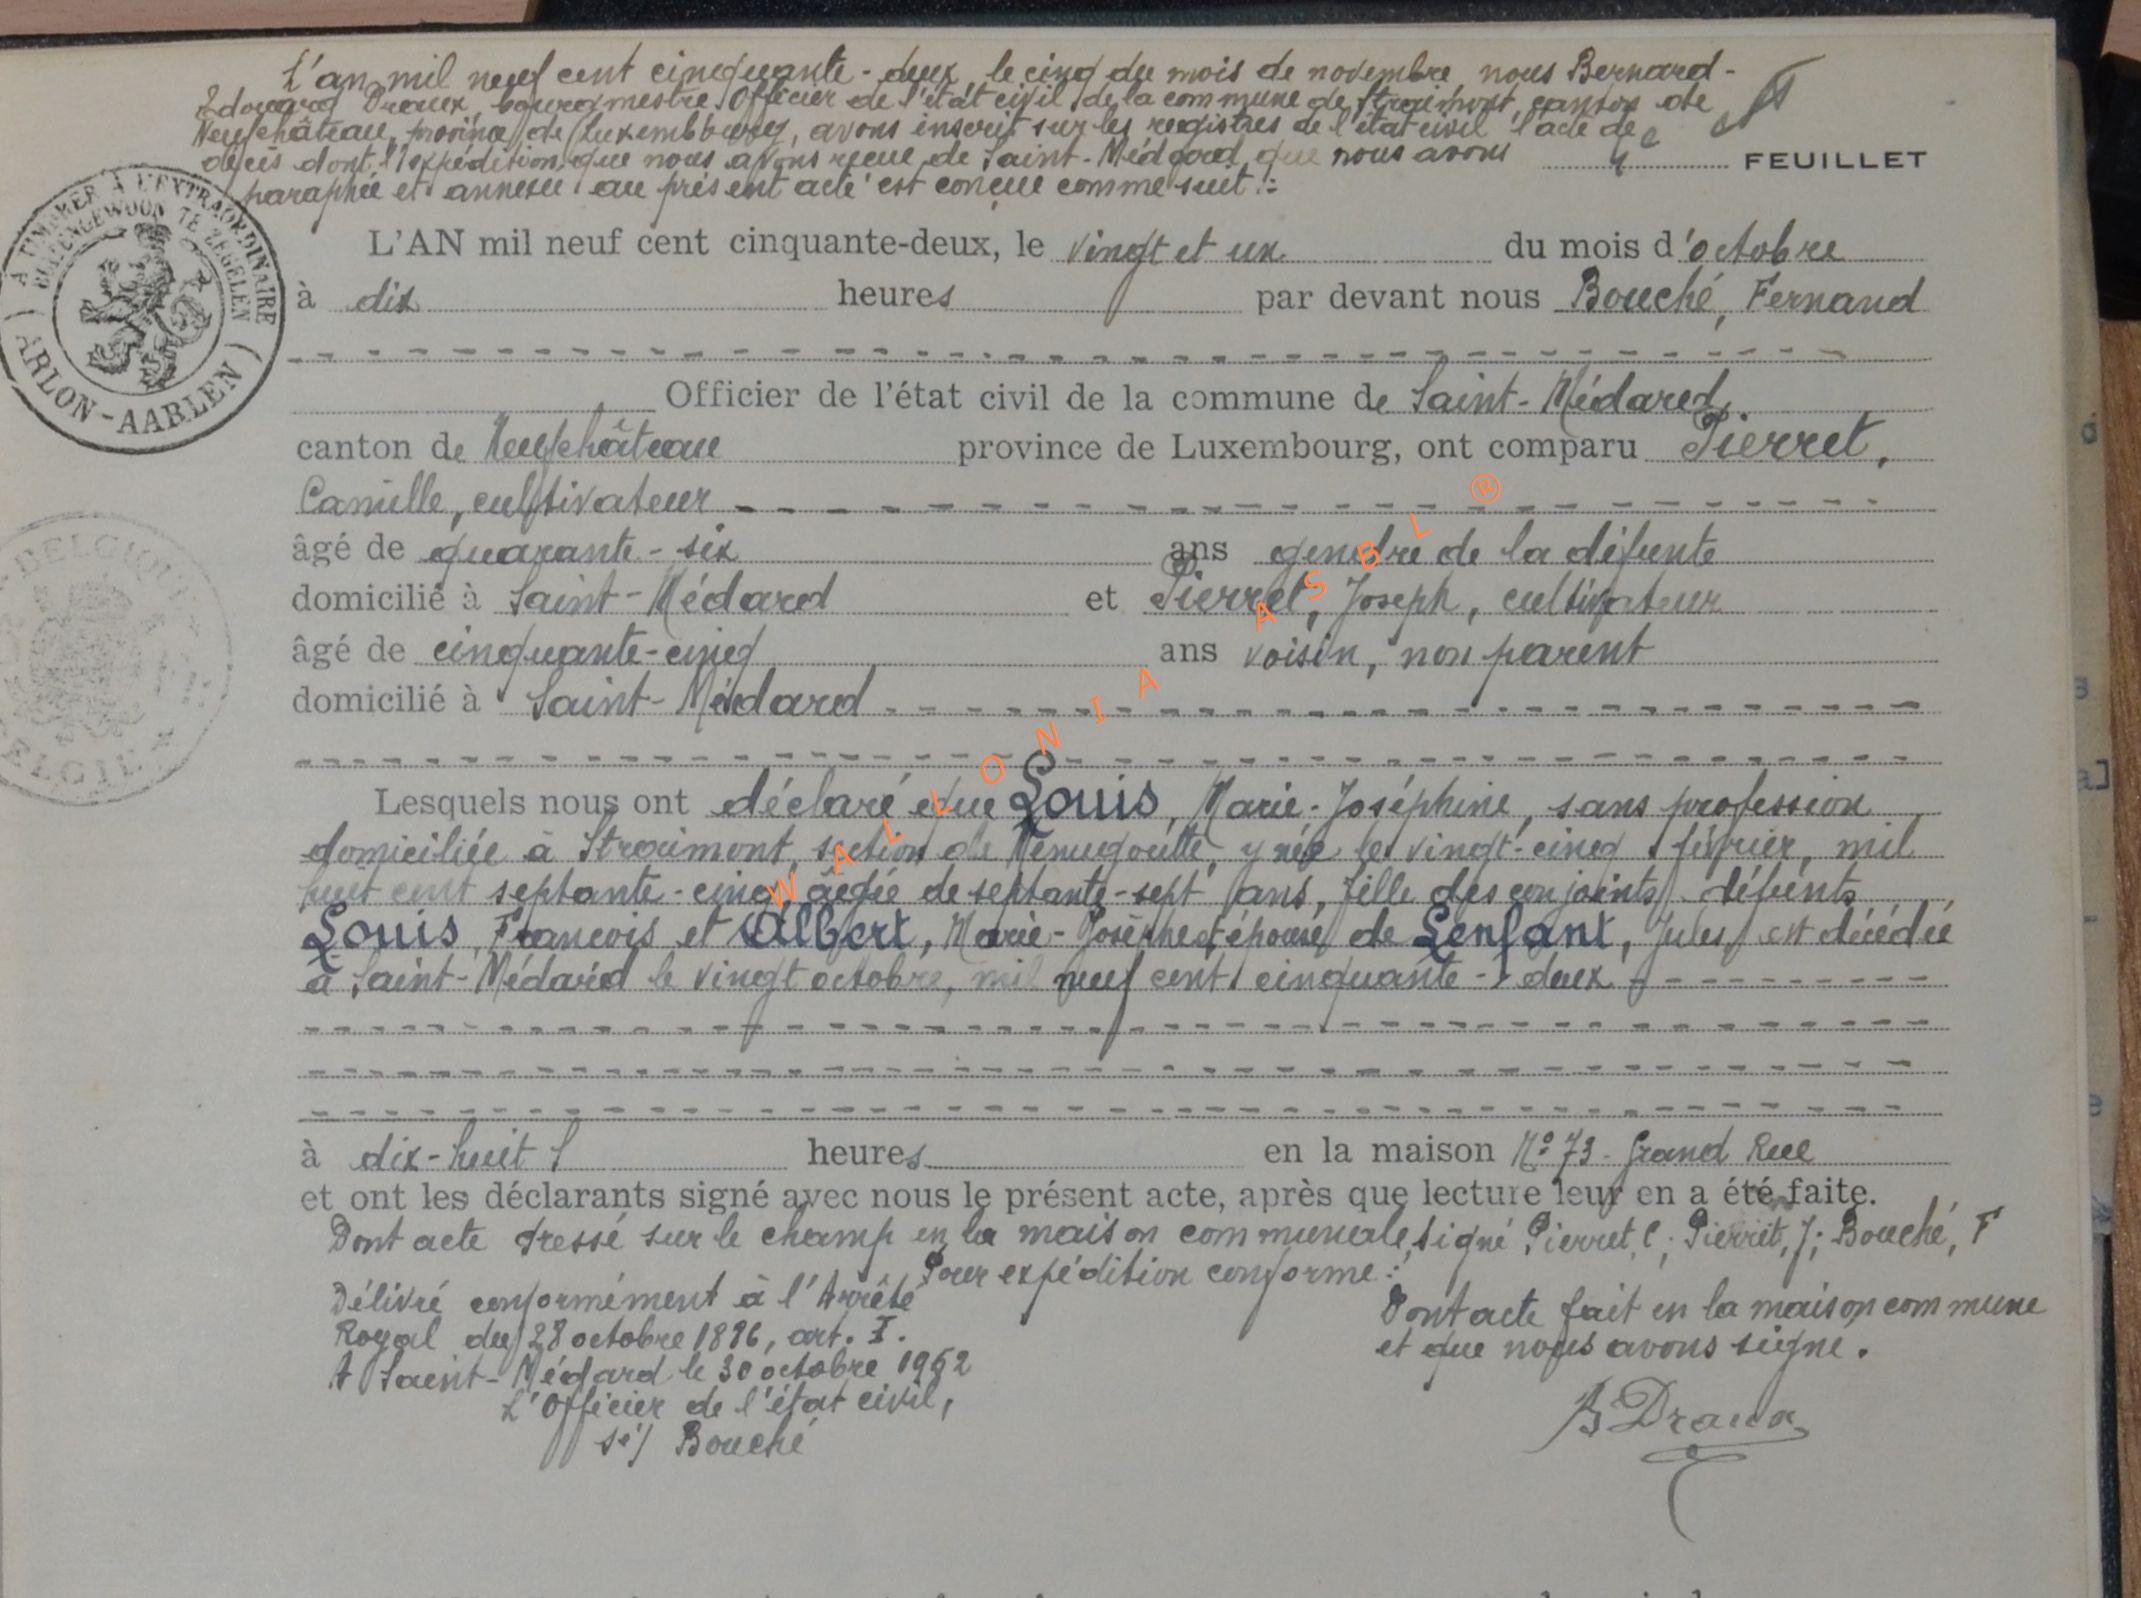 L'an mil neuf cent cinquante-deux, le cinq du mois de novembre, nous Bernard-
Edouard Draux, bourgmestre Officier de l'état civil de la commune de Straimont, canton de
Neufchâteau, province de Luxembourg, avons inscrit sur les registres de l'état civil l'acte de
décès dont l'expédition que nous avons reçue de Saint-Médard que nous avons
4e FEUILLET
paraphée et annexée au présent acte est conçue comme suit :
L'AN mil neuf cent cinquante-deux, le vingt et un du mois d'octobre
à dix heures par devant nous Bouché, Fernand
Officier de l'état civil de la commune de Saint-Médard
canton de Neufchâteau province de Luxembourg, ont comparu Pierret,
Camille, cultivateur
âgé de quarante-six ans gendre de la défunte
domicilié à Saint-Médard et Pierret, Joseph, cultivateur
âgé de cinquante-cinq ans voisin, non parent
domicilié à Saint-Médard
Lesquels nous ont déclaré que Louis, Marie-Joséphine, sans profession
domiciliée à Straimont, section de Menugoutte, y née le vingt-cinq février, mil
huit cent septante-cinq, âgée de septante-sept ans, fille des conjoints défunts
Louis, François et Albert, Marie-Josèphe, épouse de Lenfant, Jules est décédée
à Saint-Médard le vingt octobre, mil neuf cent cinquante-deux
à dix-huit heures en la maison N° 73 - Grand Rue
et ont les déclarants signé avec nous le présent acte, après que lecture leur en a été faite.
Dont acte dressé sur le champ en la maison communale, signé Pierret, C ; Pierret, J ; Bouché, F
Pour expédition conforme :
Délivré conformément à l'Arrêté
Royal du 28 octobre 1896, art. I.
A Saint-Médard le 30 octobre 1952
L'Officier de l'état civil,
sé/ Bouché
Dont acte fait en la maison commune
et que nous avons signé.
B Draux
A TIMBRER À L'EXTRAORDINAIRE
BUITENGEWOON TE ZEGELEN
ARLON-AARLEN
BELGIQUE
BELGIË
WALLONIA ASBL ®